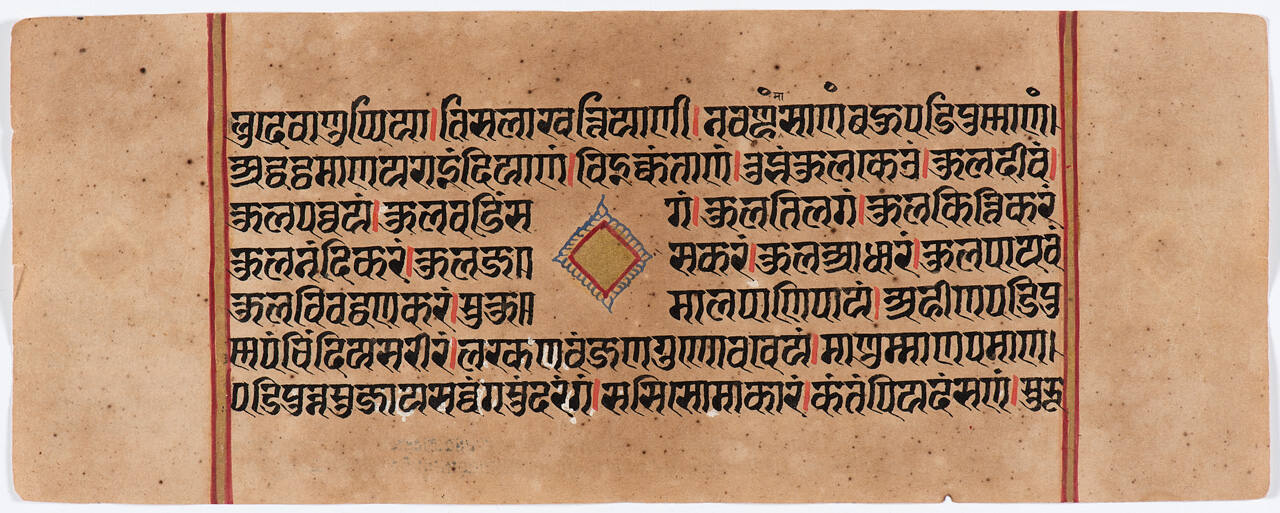 षु देवाणुप्पिया।तिसलाखत्तियाणी।नवण्हंमासाणंबहुपडिपुन्नाणं।
अद्धट्ठमाणयराइंदियाणं।विइक्कंताणं।तुम्हंकुलकेउं।कुलदीवं।
कुलपव्वयं।कुलवडिंस यं।कुलतिलयं।कुलकित्तिकरं
कुलनंदिकरं।कुलज॥ सकरं।कुलआधारं।कुलपायवं
कुलविवद्धणकरं।सुकु॥ मालपाणिपायं।अहीणपडिपु
न्नपंचिंदियसरीरं।लरकणवंजणगुणोववेयं।माणुम्माणपमाण।
पडिपुन्नसुजायसव्वंगसुंदरंगं।ससिसोमाकारं।कंतंपियदंसणं।सुरू